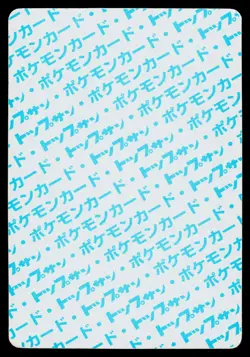 ポケモンカード・トップサン・
ポケモンカード・トップサン・
ポケモンカード・トップサン・
ポケモンカード・トップサン・
ポケモンカード・トップサン・
ポケモンカード・トップサン・
ポケモンカード・トップサン・
ポケモンカード・トップサン・
ポケモンカード・トップサン・
ポケモンカード・トップサン・
ポケモンカード・トップサン・